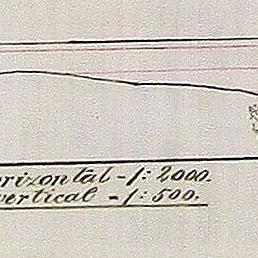 orizontal - 1: 2000.
vertical - 1: 500.